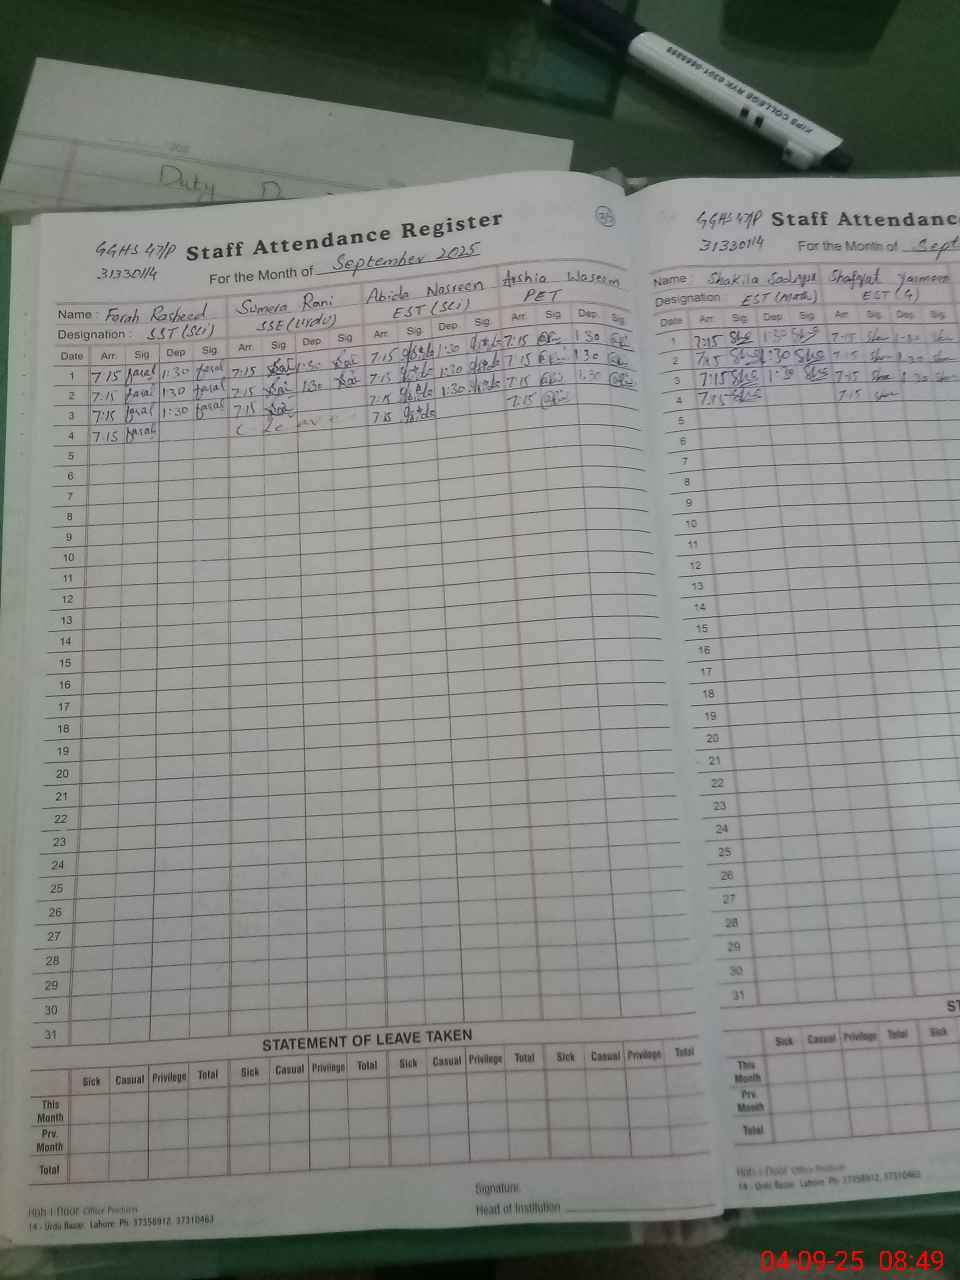 KIPS COLLEGE RYK 0301-0666999
Duty D
35
GGHS 47/P Staff Attendance Register
31330114 For the Month of September 2025
Name : Farah Rasheed Sumera Rani Abida Nasreen Arshia Waseem
Designation : SST (Sci) SSE (Urdu) EST (Sci) PET
Date Arr. Sig Dep Sig. Arr. Sig. Dep. Sig Arr. Sig. Dep. Sig. Arr. Sig. Dep. Sig.
1 7:15 farah 1:30 farah 7:15 1:30 7:15 1:30 7:15 1:30
2 7:15 farah 1:30 farah 7:15 1:30 7:15 1:30 7:15 1:30
3 7:15 farah 1:30 farah 7:15 7:15 1:30 7:15 1:30
4 7:15 farah Leave 7:15 7:15
5
6
7
8
9
10
11
12
13
14
15
16
17
18
19
20
21
22
23
24
25
26
27
28
29
30
31
STATEMENT OF LEAVE TAKEN
Sick Casual Privilege Total Sick Casual Privilege Total Sick Casual Privilege Total Sick Casual Privilege Total
This Month
Prv. Month
Total
Signature
Head of Institution
Office Products
14 - Urdu Bazar, Lahore Ph: 37358912, 37310463
GGHS 47/P Staff Attendance
31330114 For the Month of Sept
Name : Shakila Shafqat Yasmeen
Designation EST (Math) EST (G)
Date Arr. Sig. Dep Sig. Arr Sig. Dep. Sig.
1 7:15 Sha 1:30 Sha 7:15 Sha 1:30 Sha
2 7:15 Sha 1:30 Sha 7:15 Sha 1:30 Sha
3 7:15 Sha 1:30 Sha 7:15 Sha 1:30 Sha
4 7:15 Sha 7:15 Sha
5
6
7
8
9
10
11
12
13
14
15
16
17
18
19
20
21
22
23
24
25
26
27
28
29
30
31
ST
Sick Casual Privilege Total Sick
This Month
Prv. Month
Total
Office Products
14 - Urdu Bazar, Lahore Ph: 37358912, 37310463
04-09-25 08:49